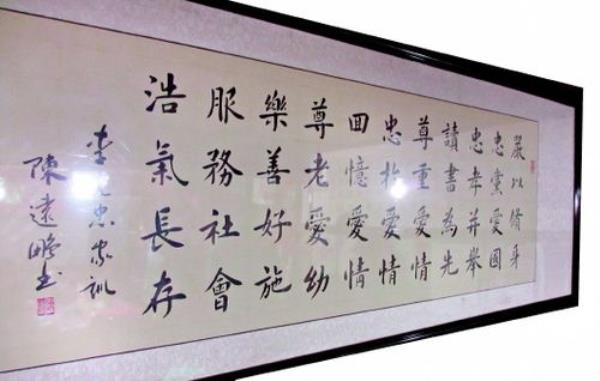 嚴以脩身
忠黨愛國
忠孝并舉
讀書為先
尊重愛情
忠扵愛情
囬憶愛情
尊老愛幼
樂善好施
服務社會
浩氣長存
李忠家訓
陳遠鵬书